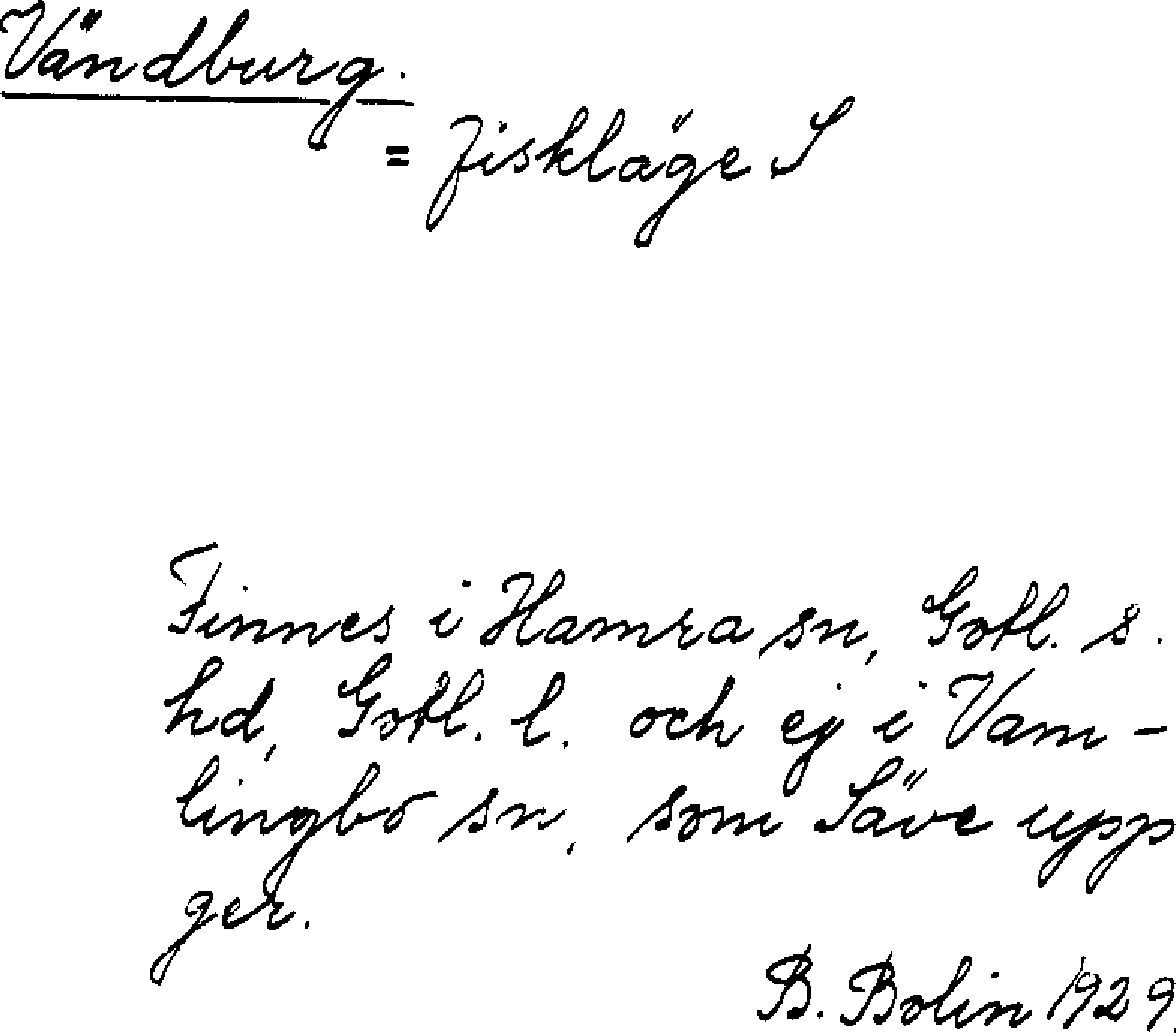 Vändburg.
= Fiskläge S
Finnes i Hamra sn, Gotl. s.
hd, Gotl. l. och ej i Vam-
lingbo sn, som Säve upp
ger.
B. Bolin 1929.